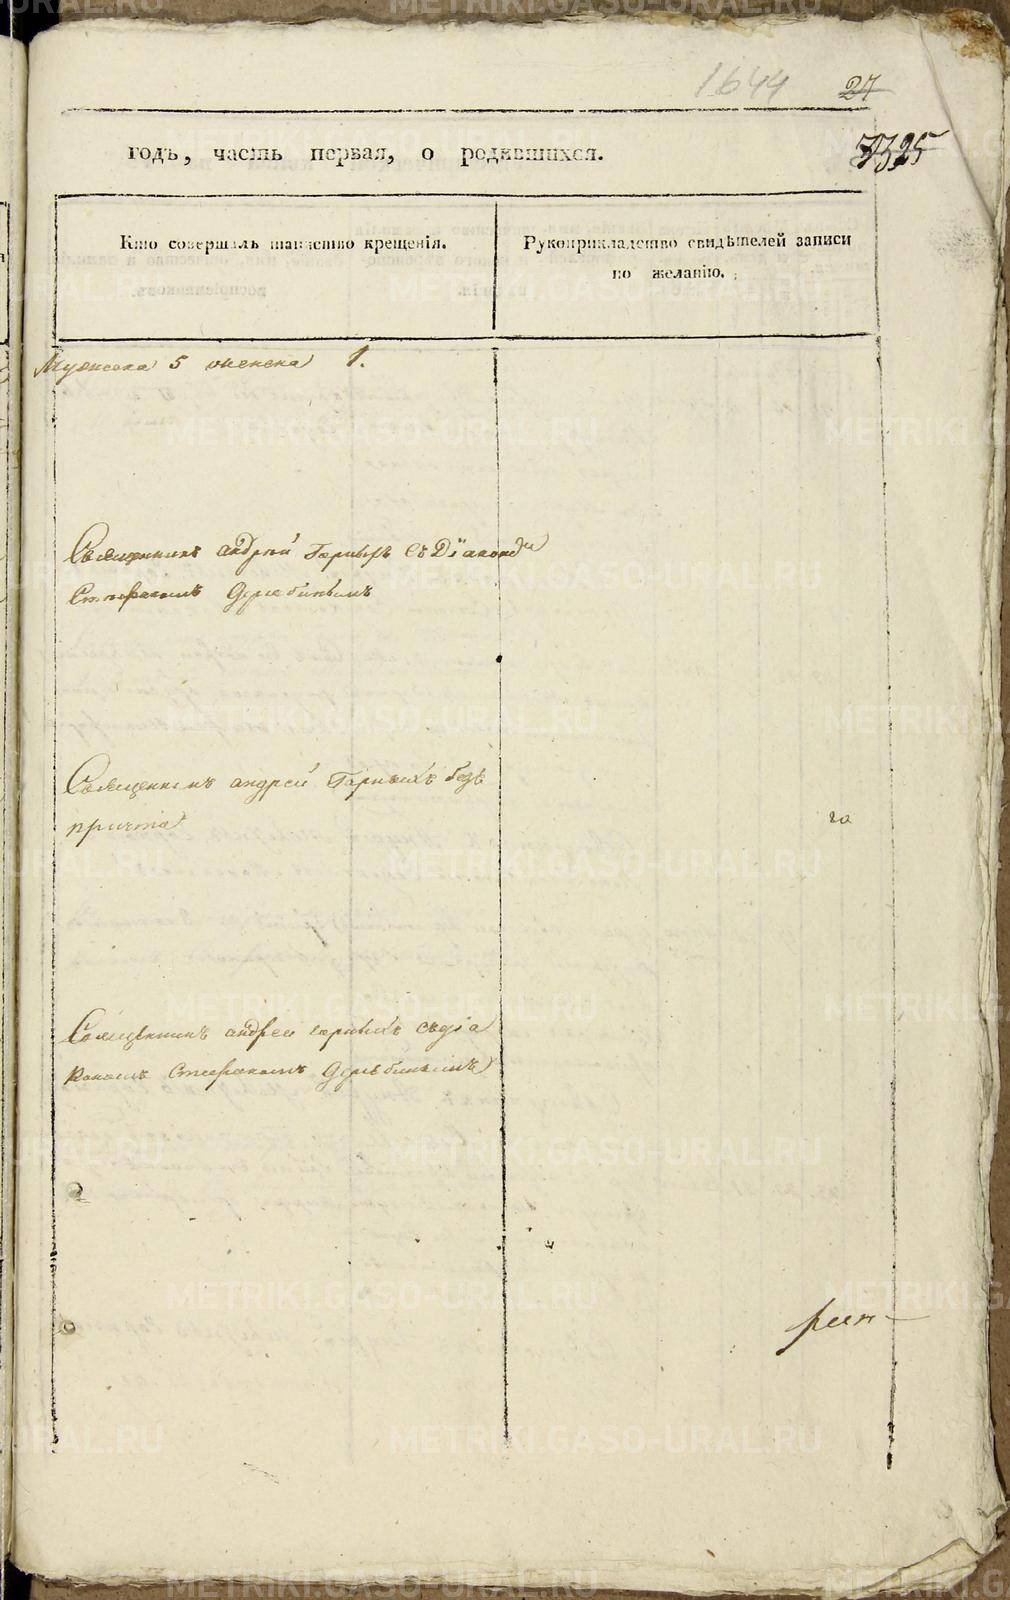 1644
27
годъ, часть первая, о родившихся.
Кто совершалъ таинство крещенія.
Рукоприкладство свидѣтелей записи
по желанію.
Мужеска 5 женска 1.
Священникъ андрей Горныхъ съ Діакономъ
Стефаномъ Дерябинымъ
Священникъ андрей Горныхъ безъ
причта
го
Священникъ андрей горныхъ съ діа
кономъ Стефаномъ Дерябинымъ
METRIKI.GASO-URAL.RU